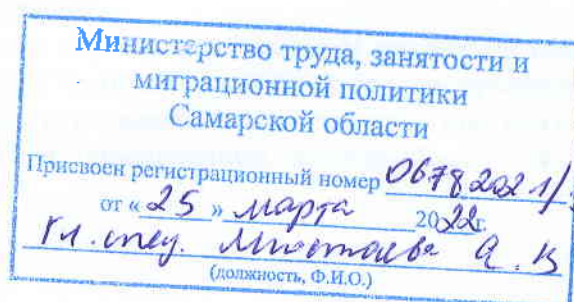 Министерство труда, занятости и
миграционной политики
Самарской области
Присвоен регистрационный номер 06782021/
от «25» марта 2022г.
Гл. спец. А. В
(должность, Ф.И.О.)